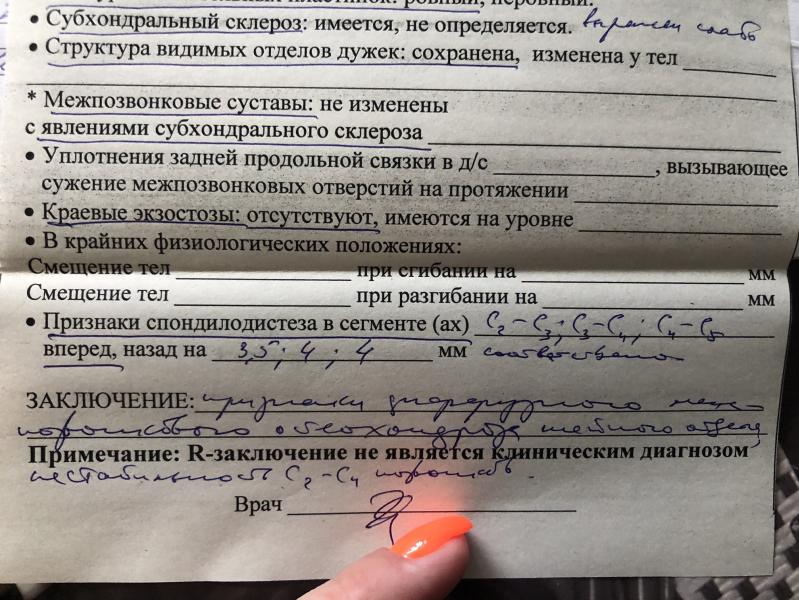 ровный, неровный.
• Субхондральный склероз: имеется, не определяется. выражен слабо
• Структура видимых отделов дужек: сохранена, изменена у тел
* Межпозвонковые суставы: не изменены
с явлениями субхондрального склероза
• Уплотнения задней продольной связки в д/с , вызывающее
сужение межпозвонковых отверстий на протяжении
• Краевые экзостозы: отсутствуют, имеются на уровне
• В крайних физиологических положениях:
Смещение тел при сгибании на мм
Смещение тел при разгибании на мм
• Признаки спондилодистеза в сегменте (ах) C2 – C3; C3 – C4; C4 – C5
вперед, назад на 3,5; 4; 4 мм соответственно
ЗАКЛЮЧЕНИЕ: признаки диффузного меж-
остеохондроза шейного отдела
Примечание: R-заключение не является клиническим диагнозом
нестабильность C2 – C4
Врач